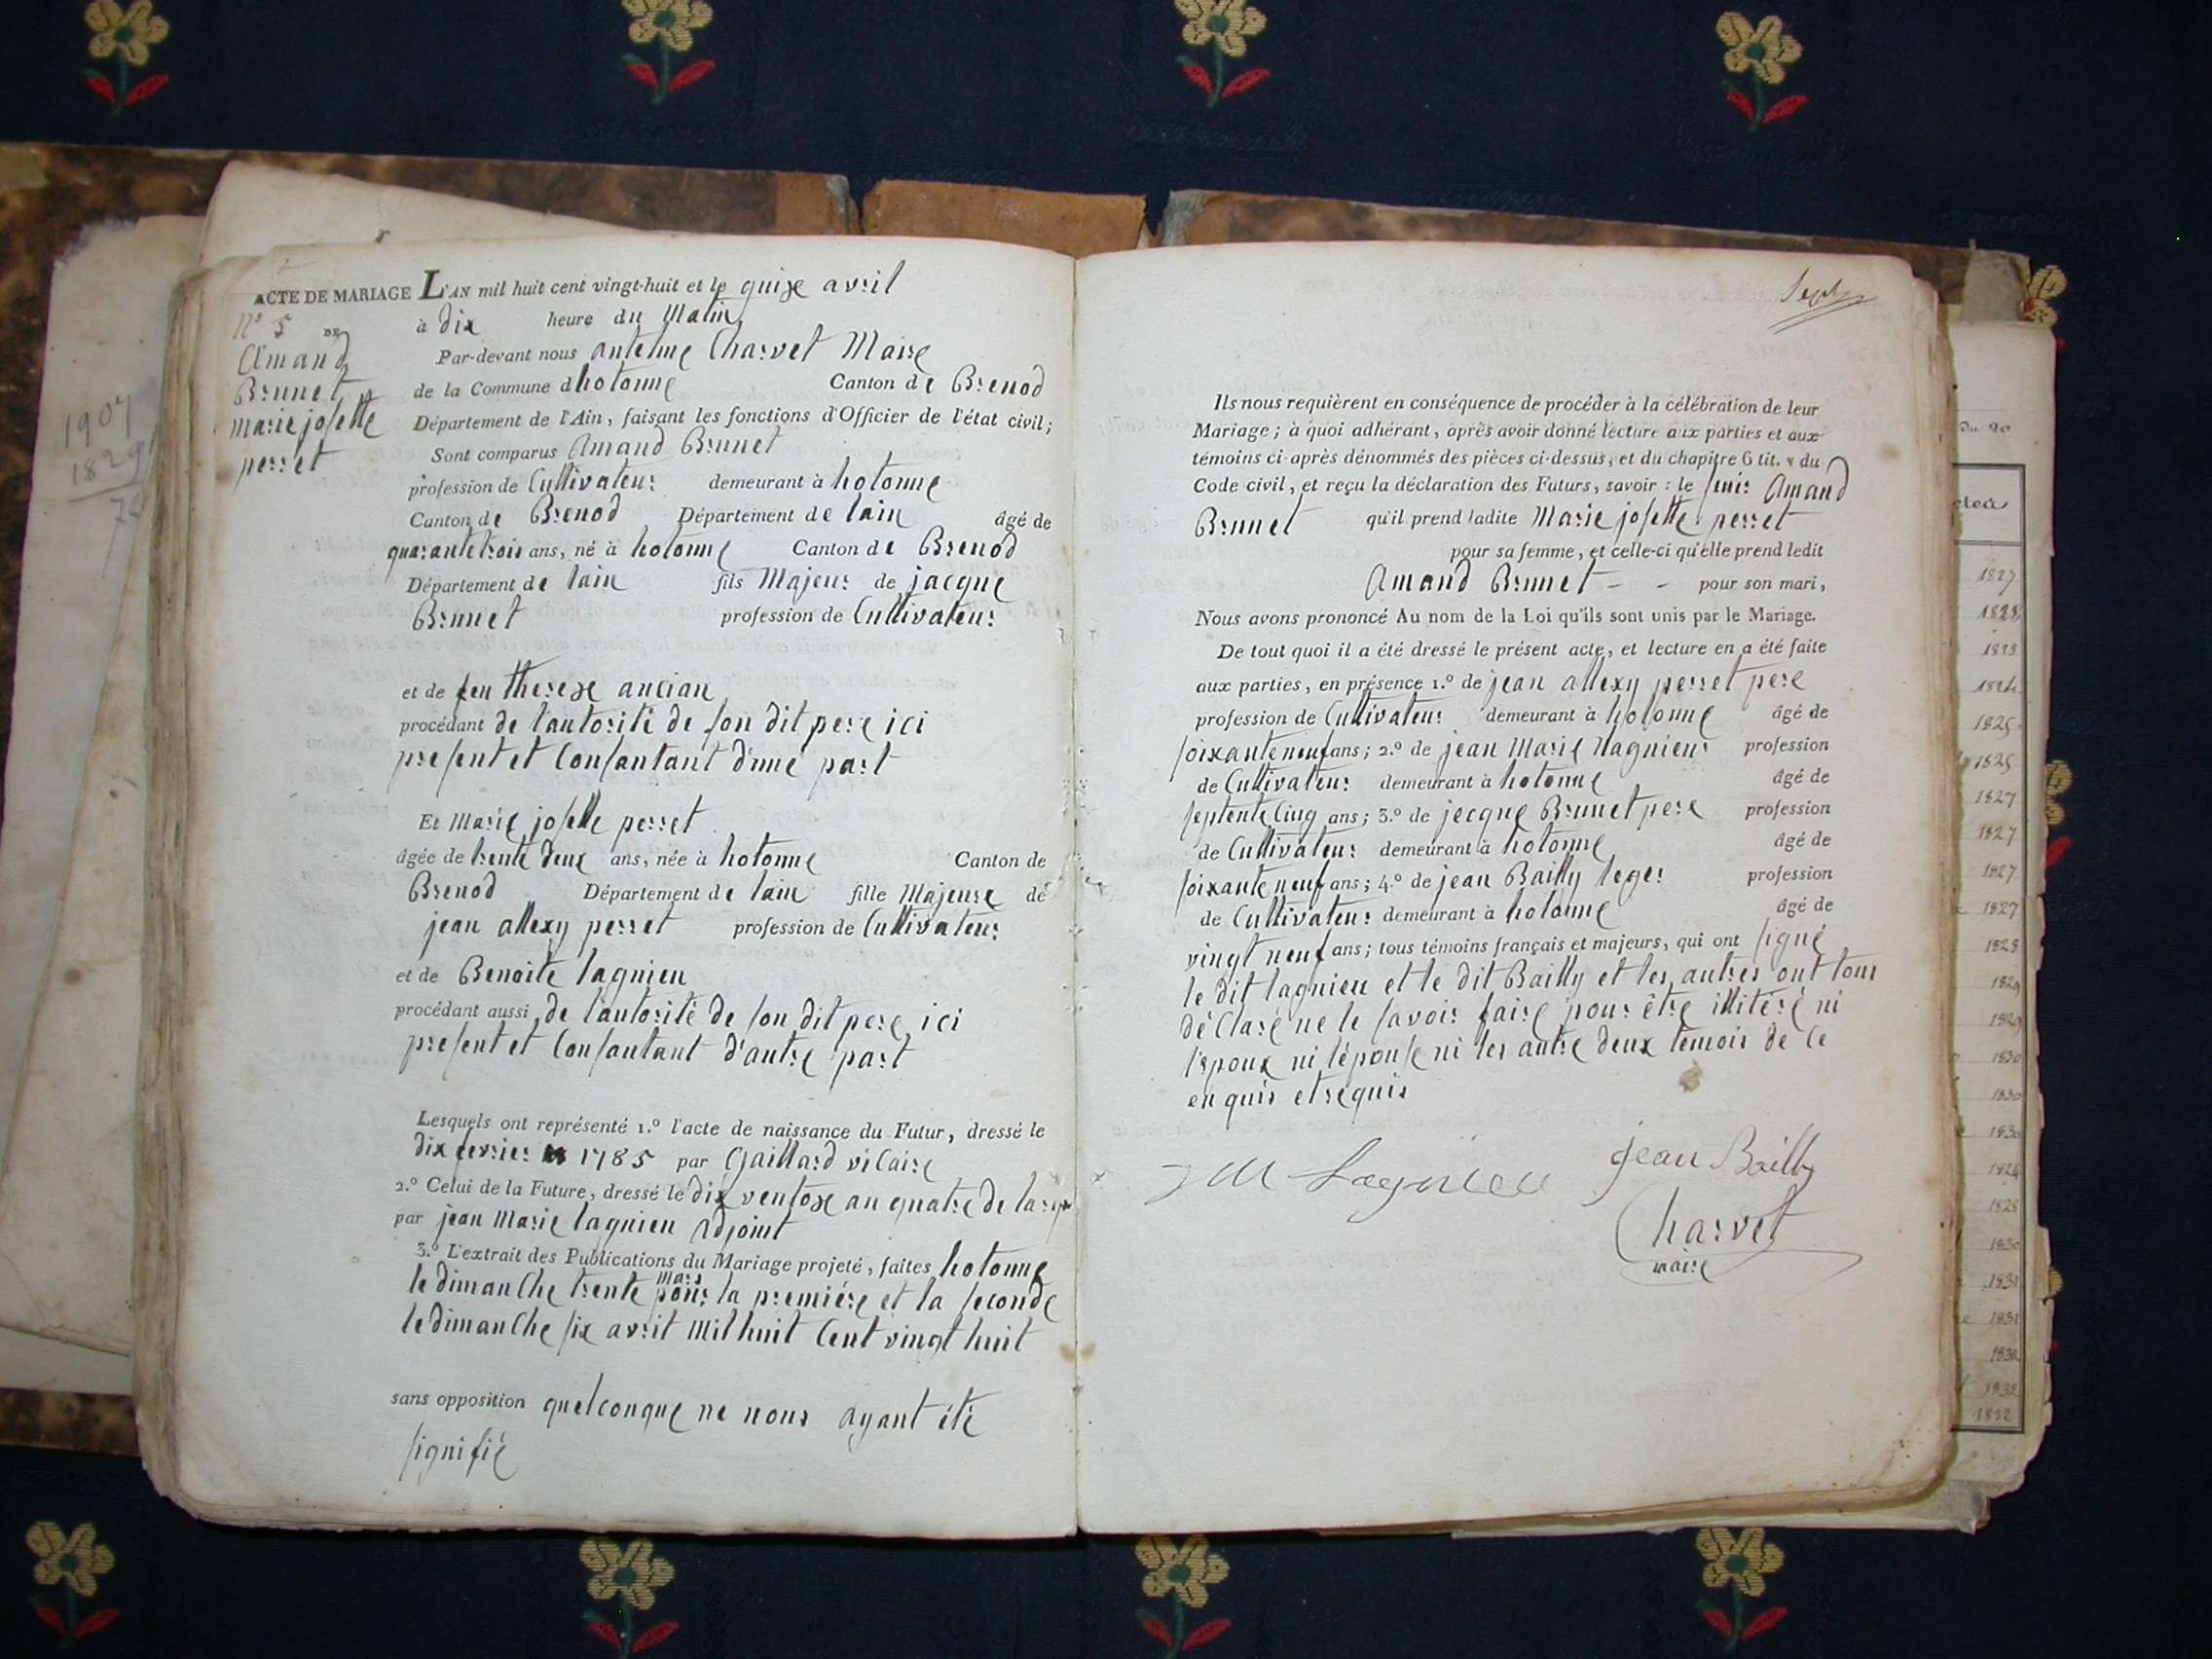 ACTE DE MARIAGE L'AN mil huit cent vingt-huit et le quise avril
N° 5 DE à dix heure du Matin
Amand Par-devant nous antelme Charvet Maire
Brunet de la Commune dhotonne Canton de Brenod
marie josette Département de l'Ain, faisant les fonctions d'Officier de l'état civil;
perret Sont comparus Amand Brunet
profession de Cultivateur demeurant à hotonne
Canton de Brenod Département de lain âgé de
quarante trois ans, né à hotonne Canton de Brenod
Département de lain fils Majeur de jacque
Brunet profession de Cultivateur
et de feu therese ancian
procédant de l'autorité de son dit pere ici
present et Consantant d'une part
Et Marie josette perret
âgée de trente deux ans, née à hotonne Canton de
Brenod Département de lain fille Majeure de
jean allexy perret profession de Cultivateur
et de Benoite lagnieu
procédant aussi de l'autorité de son dit pere ici
present et Consantant d'autre part
Lesquels ont représenté 1.° l'acte de naissance du Futur, dressé le
dix fevrier 1785 par Gaillard vicaire
2.° Celui de la Future, dressé le dix ventose an quatre de la
par jean Marie lagnieu adjoint
3.° L'extrait des Publications du Mariage projeté, faites hotonne
le dimanche trente mars pour la première et la seconde
le dimanche six avril mil huit Cent vingt huit
sans opposition quelconque ne nous ayant été
signifié
1907
1829
Sept
Ils nous requièrent en conséquence de procéder à la célébration de leur
Mariage; à quoi adhérant, après avoir donné lecture aux parties et aux
témoins ci-après dénommés des pièces ci-dessus, et du chapitre 6 tit. v du
Code civil, et reçu la déclaration des Futurs, savoir: le Amand
Brunet qu'il prend ladite Marie josette perret
pour sa femme, et celle-ci qu'elle prend ledit
Amand Brunet - - pour son mari,
Nous avons prononcé Au nom de la Loi qu'ils sont unis par le Mariage.
De tout quoi il a été dressé le présent acte, et lecture en a été faite
aux parties, en présence 1.° de jean allexy perret pere
profession de Cultivateur demeurant à hotonne âgé de
soixante neuf ans; 2.° de jean Marie lagnieur profession
de Cultivateur demeurant à hotonne âgé de
septente Cinq ans; 3.° de jecque Brunet pere profession
de Cultivateur demeurant à hotonne âgé de
soixante neuf ans; 4.° de jean Bailly leger profession
de Cultivateur demeurant à hotonne âgé de
vingt neuf ans; tous témoins français et majeurs, qui ont signé
le dit lagnieu et le dit Bailly et les autres ont tous
déClaré ne le savoir faire pour être illitéré ni
l'epoux ni lépouse ni les autre deux temois de Ce
en quis et requis
JM Lagnieu jean Bailly
Charvet
maire
du 20
1827
1828
1823
1824
1825
1825
1827
1827
1827
1827
1828
1829
1829
1830
1830
1830
1824
1828
1830
1831
1831
1832
1832
1832